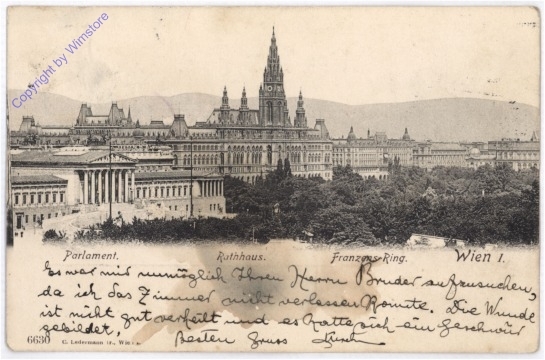 Copyright by Wimstore
Parlament. Rathhaus. Franzens-Ring. Wien I.
Es war mir unmöglich Ihren Herrn Bruder aufzusuchen,
da ich das Zimmer nicht verlassen konnte. Die Wunde
ist nicht gut verheilt und es hatte sich ein Geschwür
gebildet.
Besten Gruss
6630 C. Ledermann jr., Wien I.